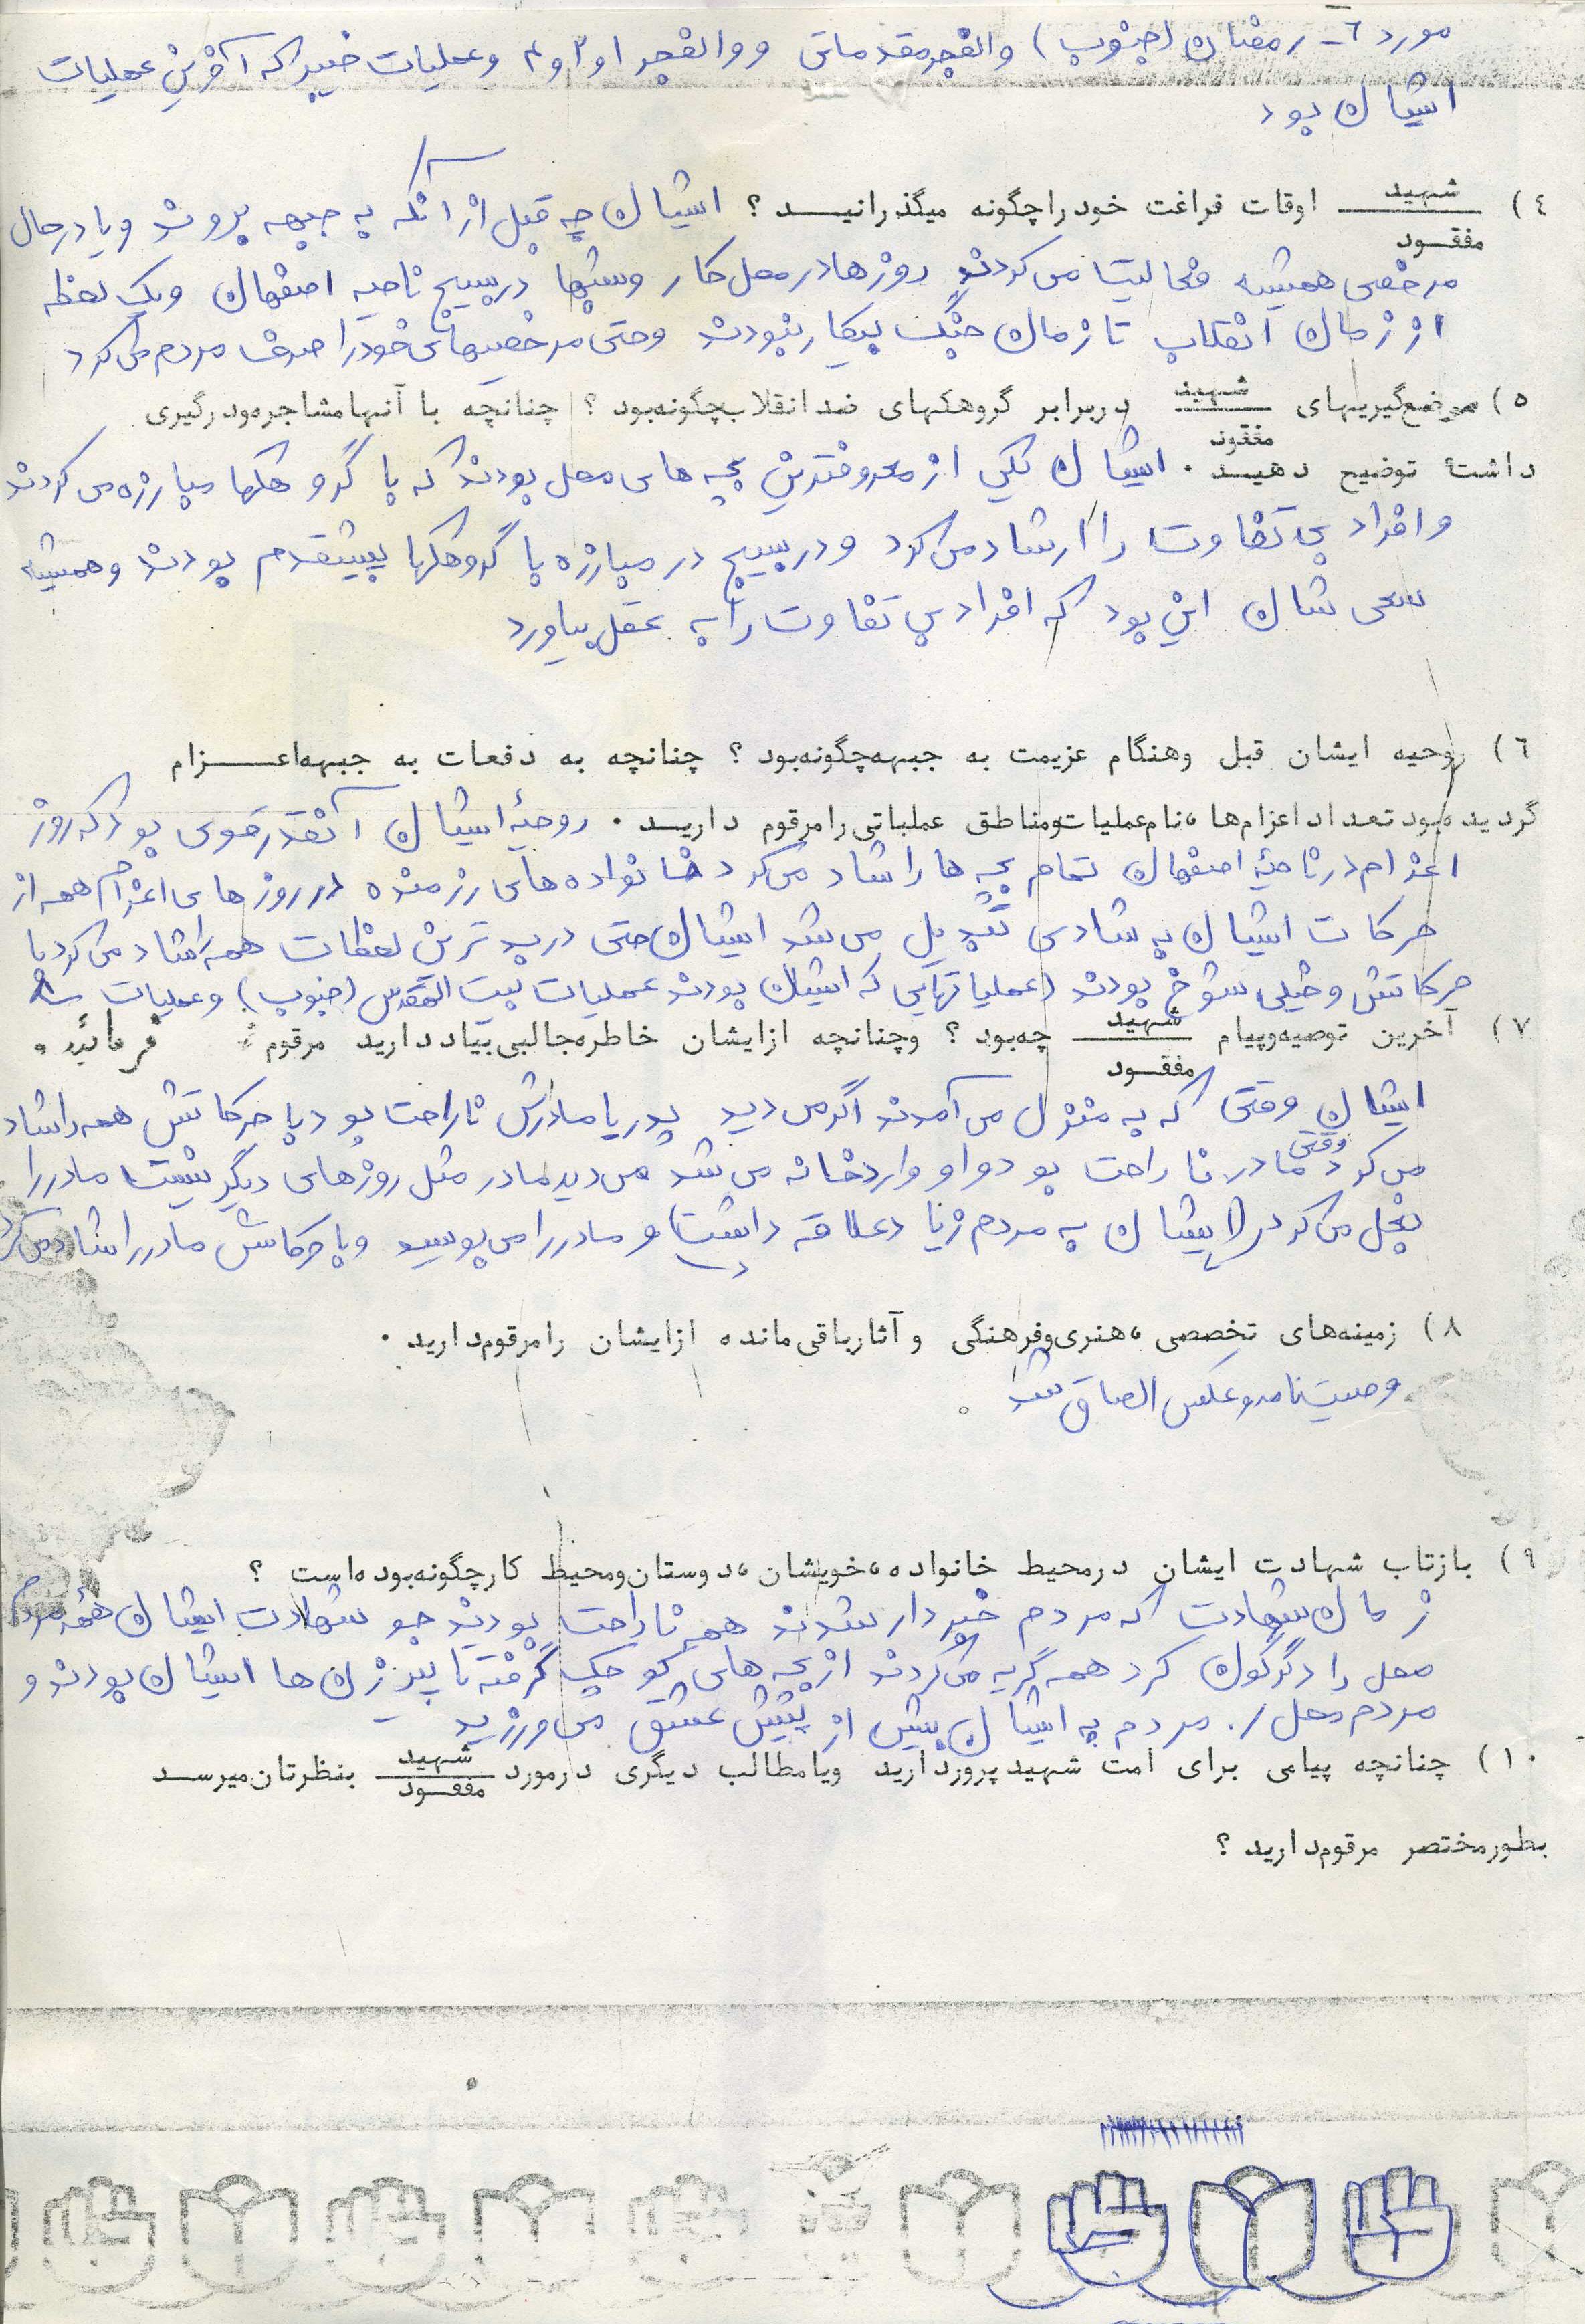 مورد ٦- رمضان (جنوب) والفجر مقدماتی و والفجر ۱ و ۲ و ۴ وعملیات خیبر که آخرین عملیات
ایشان بود
٤) شهید
مفقود اوقات فراغت خود را چگونه میگذرانیــد ؟ ایشان چه قبل از آنکه به جبهه بروند و یا درحال
مرخصی همیشه فعالیت می کردند روزها در محل کار و شبها در بسیج ناحیه اصفهان و یک لحظه
از زمان انقلاب تا زمان جنگ بیکار نبودند و حتی مرخصیهای خود را صرف مردم می کرد
٥) موضع‌گیریهای شهید
مفقود دربرابر گروهکهای ضد انقلاب چگونه بود ؟ چنانچه با آنها مشاجره ودرگیری
داشتهٔ توضیح دهیـد . ایشان یکی از معروفترین بچه های محل بودند که با گروهکها مبارزه می کردند
و افراد بی تفاوت را ارشاد می کرد و در بسیج در مبارزه با گروهکها پیشقدم بودند و همیشه
سعی شان این بود که افراد بی تفاوت را به عقل بیاورد
٦) روحیه ایشان قبل وهنگام عزیمت به جبهه چگونه بود ؟ چنانچه به دفعات به جبهه اعـزام
گردیده بود تعداد اعزام‌ها ، نام عملیات ومناطق عملیاتی را مرقوم داریـد . روحیهٔ ایشان آنقدر قوی بود که روز
اعزام در ناحیهٔ اصفهان تمام بچه ها را شاد می کرد خانواده های رزمنده در روزهای اعزام همه از
حرکات ایشان به شادی تبدیل می شد ایشان حتی در بدترین لحظات همه را شاد می کرد با
حرکاتش و خیلی شوخ بودند (عملیاتهایی که ایشان بودند عملیات بیت المقدس (جنوب) و عملیات
٧) آخرین توصیه وپیام شهید
مفقود چه بود ؟ وچنانچه ازایشان خاطره جالبی بیاد دارید مرقوم فرمائید .
ایشان وقتی که به منزل می آمدند اگر می دید پدر یا مادرش ناراحت بود با حرکاتش همه را شاد
می کرد وقتی مادر ناراحت بود و او وارد خانه می شد می دید مادر مثل روزهای دیگر نیست مادر را
بغل می کرد (ایشان به مردم زیاد علاقه داشت) و مادر را می بوسید و با حرکاتش مادر را شاد می کرد
٨) زمینه‌های تخصصی ، هنری وفرهنگی و آثار باقی مانده ازایشان را مرقوم دارید .
وصیت نامه و عکس الصاق شد .
٩) بازتاب شهادت ایشان درمحیط خانواده ، خویشان ، دوستان ومحیط کار چگونه بوده است ؟
زمان شهادت که مردم خبردار شدند همه ناراحت بودند جو شهادت ایشان همهٔ مردم
محل را دگرگون کرد همه گریه می کردند از بچه های کوچک گرفته تا پیرزن ها ایشان بودند و
مردم محل . مردم به ایشان بیش از پیش عشق می ورزید
١٠) چنانچه پیامی برای امت شهیدپرور دارید ویامطالب دیگری درمورد شهید
مفقود بنظرتان میرسد
بطور مختصر مرقوم دارید ؟